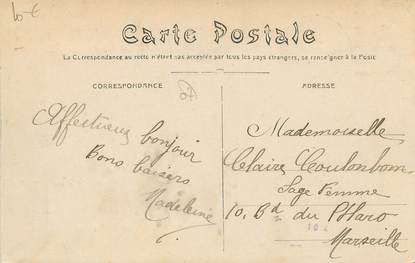 10 €
Carte Postale
La Correspondance au recto n'étant pas acceptée par tous les pays étrangers, se renseigner à la Poste
CORRESPONDANCE
Affectueux bonjour
Bons baisers
Madeleine
ADRESSE
Mademoiselle
Claire
Sage Femme
10. Bd du Pharo
Marseille